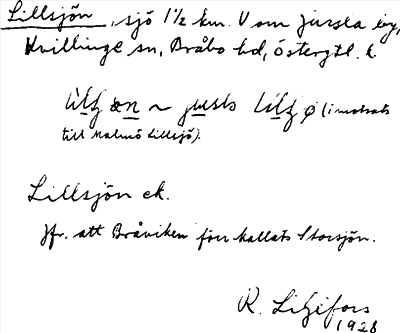 Lillsjön, sjö 1 1/2 km. V om Jursla by,
Kvillinge sn, Bråbo hd, Östergtl. l.
(i motsats
till Malmö Lillsjö).
Lillsjön ek.
Jfr. att Bråviken förr kallats Storsjön.
R. Liljefors
1928